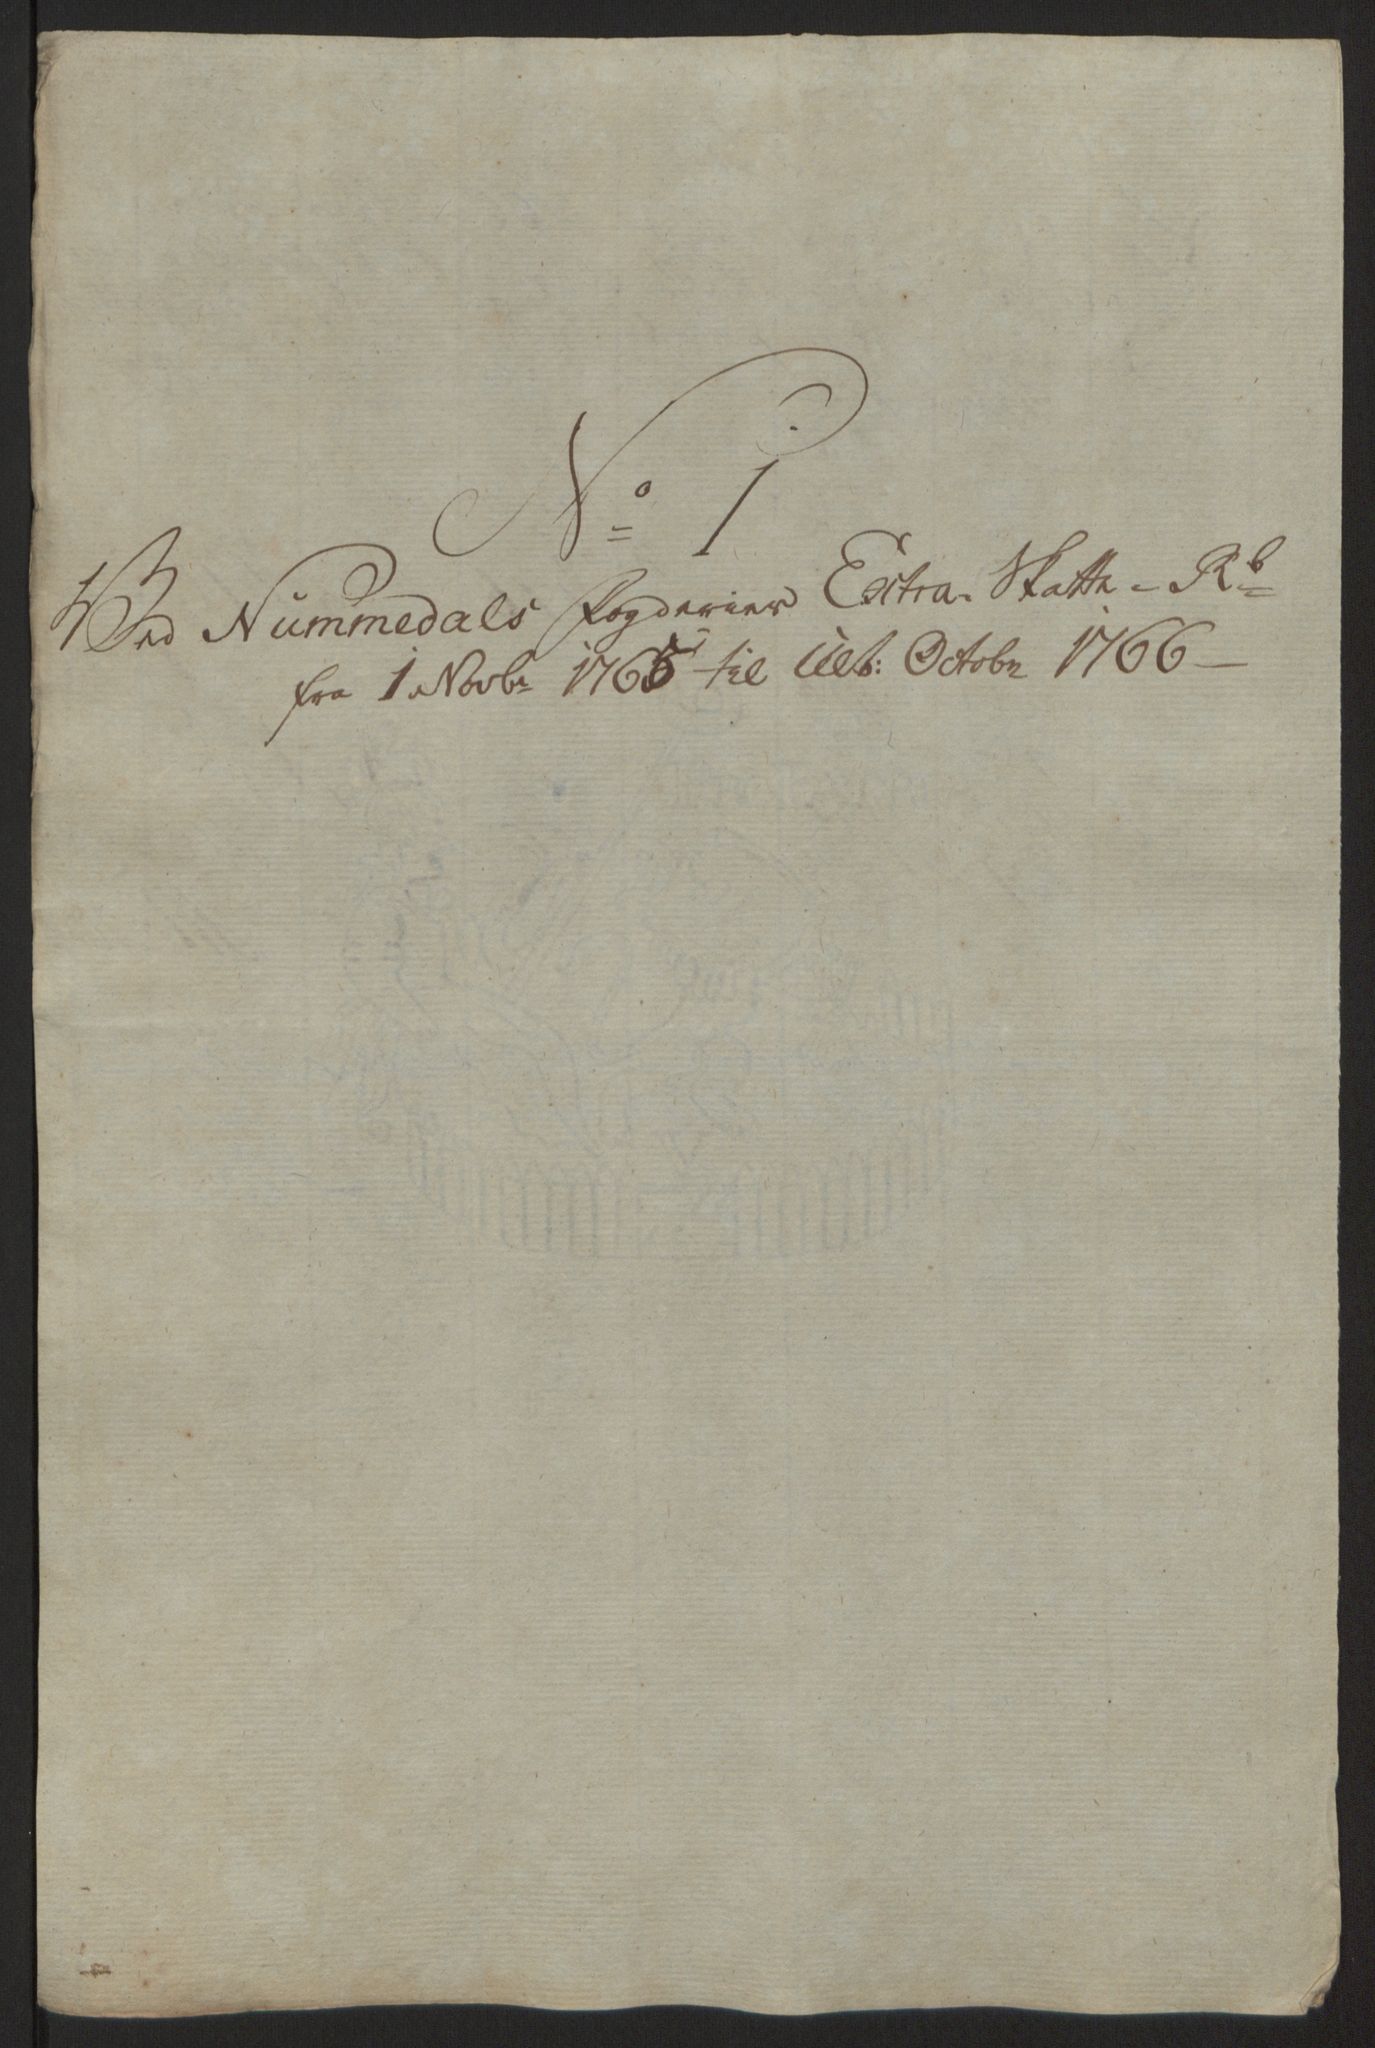 No 1
Ved Nummedals Fogderies Extra Skatte-Rb
fra 1 Novbr 1765 til Ult: Octobr 1766